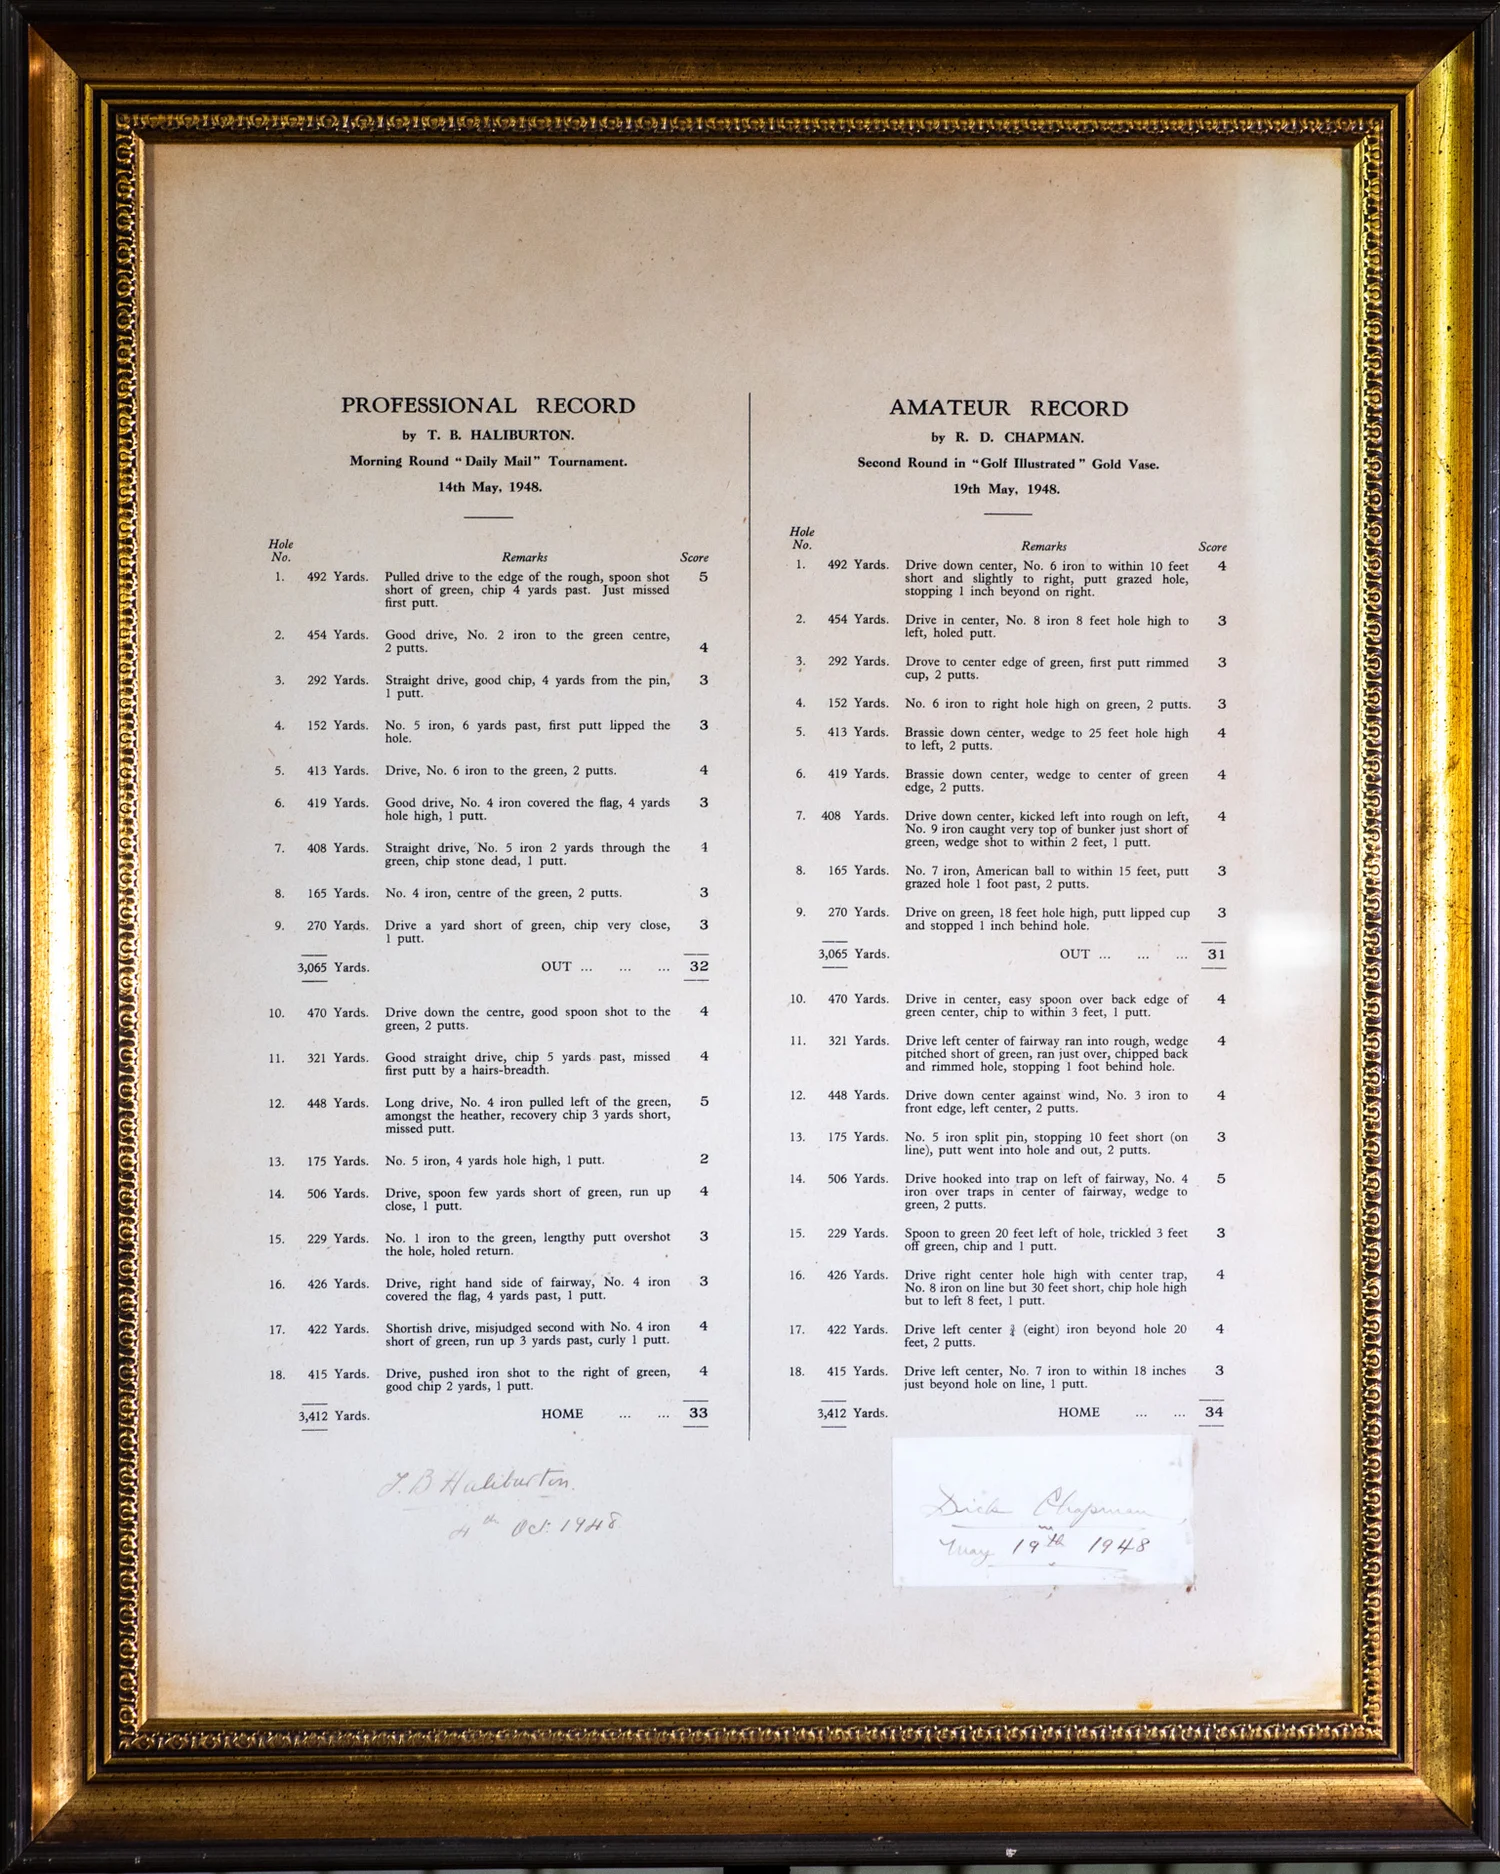 PROFESSIONAL RECORD
by T. B. HALIBURTON.
Morning Round "Daily Mail" Tournament.
14th May, 1948.
Hole
No. Remarks Score
1. 492 Yards. Pulled drive to the edge of the rough, spoon shot 5
short of green, chip 4 yards past. Just missed
first putt.
2. 454 Yards. Good drive, No. 2 iron to the green centre,
2 putts. 4
3. 292 Yards. Straight drive, good chip, 4 yards from the pin, 3
1 putt.
4. 152 Yards. No. 5 iron, 6 yards past, first putt lipped the 3
hole.
5. 413 Yards. Drive, No. 6 iron to the green, 2 putts. 4
6. 419 Yards. Good drive, No. 4 iron covered the flag, 4 yards 3
hole high, 1 putt.
7. 408 Yards. Straight drive, No. 5 iron 2 yards through the 4
green, chip stone dead, 1 putt.
8. 165 Yards. No. 4 iron, centre of the green, 2 putts. 3
9. 270 Yards. Drive a yard short of green, chip very close, 3
1 putt.
3,065 Yards. OUT ... ... ... 32
10. 470 Yards. Drive down the centre, good spoon shot to the 4
green, 2 putts.
11. 321 Yards. Good straight drive, chip 5 yards past, missed 4
first putt by a hairs-breadth.
12. 448 Yards. Long drive, No. 4 iron pulled left of the green, 5
amongst the heather, recovery chip 3 yards short,
missed putt.
13. 175 Yards. No. 5 iron, 4 yards hole high, 1 putt. 2
14. 506 Yards. Drive, spoon few yards short of green, run up 4
close, 1 putt.
15. 229 Yards. No. 1 iron to the green, lengthy putt overshot 3
the hole, holed return.
16. 426 Yards. Drive, right hand side of fairway, No. 4 iron 3
covered the flag, 4 yards past, 1 putt.
17. 422 Yards. Shortish drive, misjudged second with No. 4 iron 4
short of green, run up 3 yards past, curly 1 putt.
18. 415 Yards. Drive, pushed iron shot to the right of green, 4
good chip 2 yards, 1 putt.
3,412 Yards. HOME ... ... 33
T. B Haliburton.
4th Oct. 1948
AMATEUR RECORD
by R. D. CHAPMAN.
Second Round in "Golf Illustrated" Gold Vase.
19th May, 1948.
Hole
No. Remarks Score
1. 492 Yards. Drive down center, No. 6 iron to within 10 feet 4
short and slightly to right, putt grazed hole,
stopping 1 inch beyond on right.
2. 454 Yards. Drive in center, No. 8 iron 8 feet hole high to 3
left, holed putt.
3. 292 Yards. Drove to center edge of green, first putt rimmed 3
cup, 2 putts.
4. 152 Yards. No. 6 iron to right hole high on green, 2 putts. 3
5. 413 Yards. Brassie down center, wedge to 25 feet hole high 4
to left, 2 putts.
6. 419 Yards. Brassie down center, wedge to center of green 4
edge, 2 putts.
7. 408 Yards. Drive down center, kicked left into rough on left, 4
No. 9 iron caught very top of bunker just short of
green, wedge shot to within 2 feet, 1 putt.
8. 165 Yards. No. 7 iron, American ball to within 15 feet, putt 3
grazed hole 1 foot past, 2 putts.
9. 270 Yards. Drive on green, 18 feet hole high, putt lipped cup 3
and stopped 1 inch behind hole.
3,065 Yards. OUT ... ... ... 31
10. 470 Yards. Drive in center, easy spoon over back edge of 4
green center, chip to within 3 feet, 1 putt.
11. 321 Yards. Drive left center of fairway ran into rough, wedge 4
pitched short of green, ran just over, chipped back
and rimmed hole, stopping 1 foot behind hole.
12. 448 Yards. Drive down center against wind, No. 3 iron to 4
front edge, left center, 2 putts.
13. 175 Yards. No. 5 iron split pin, stopping 10 feet short (on 3
line), putt went into hole and out, 2 putts.
14. 506 Yards. Drive hooked into trap on left of fairway, No. 4 5
iron over traps in center of fairway, wedge to
green, 2 putts.
15. 229 Yards. Spoon to green 20 feet left of hole, trickled 3 feet 3
off green, chip and 1 putt.
16. 426 Yards. Drive right center hole high with center trap, 4
No. 8 iron on line but 30 feet short, chip hole high
but to left 8 feet, 1 putt.
17. 422 Yards. Drive left center ¾ (eight) iron beyond hole 20 4
feet, 2 putts.
18. 415 Yards. Drive left center, No. 7 iron to within 18 inches 3
just beyond hole on line, 1 putt.
3,412 Yards. HOME ... ... 34
Dick Chapman
May 19th 1948